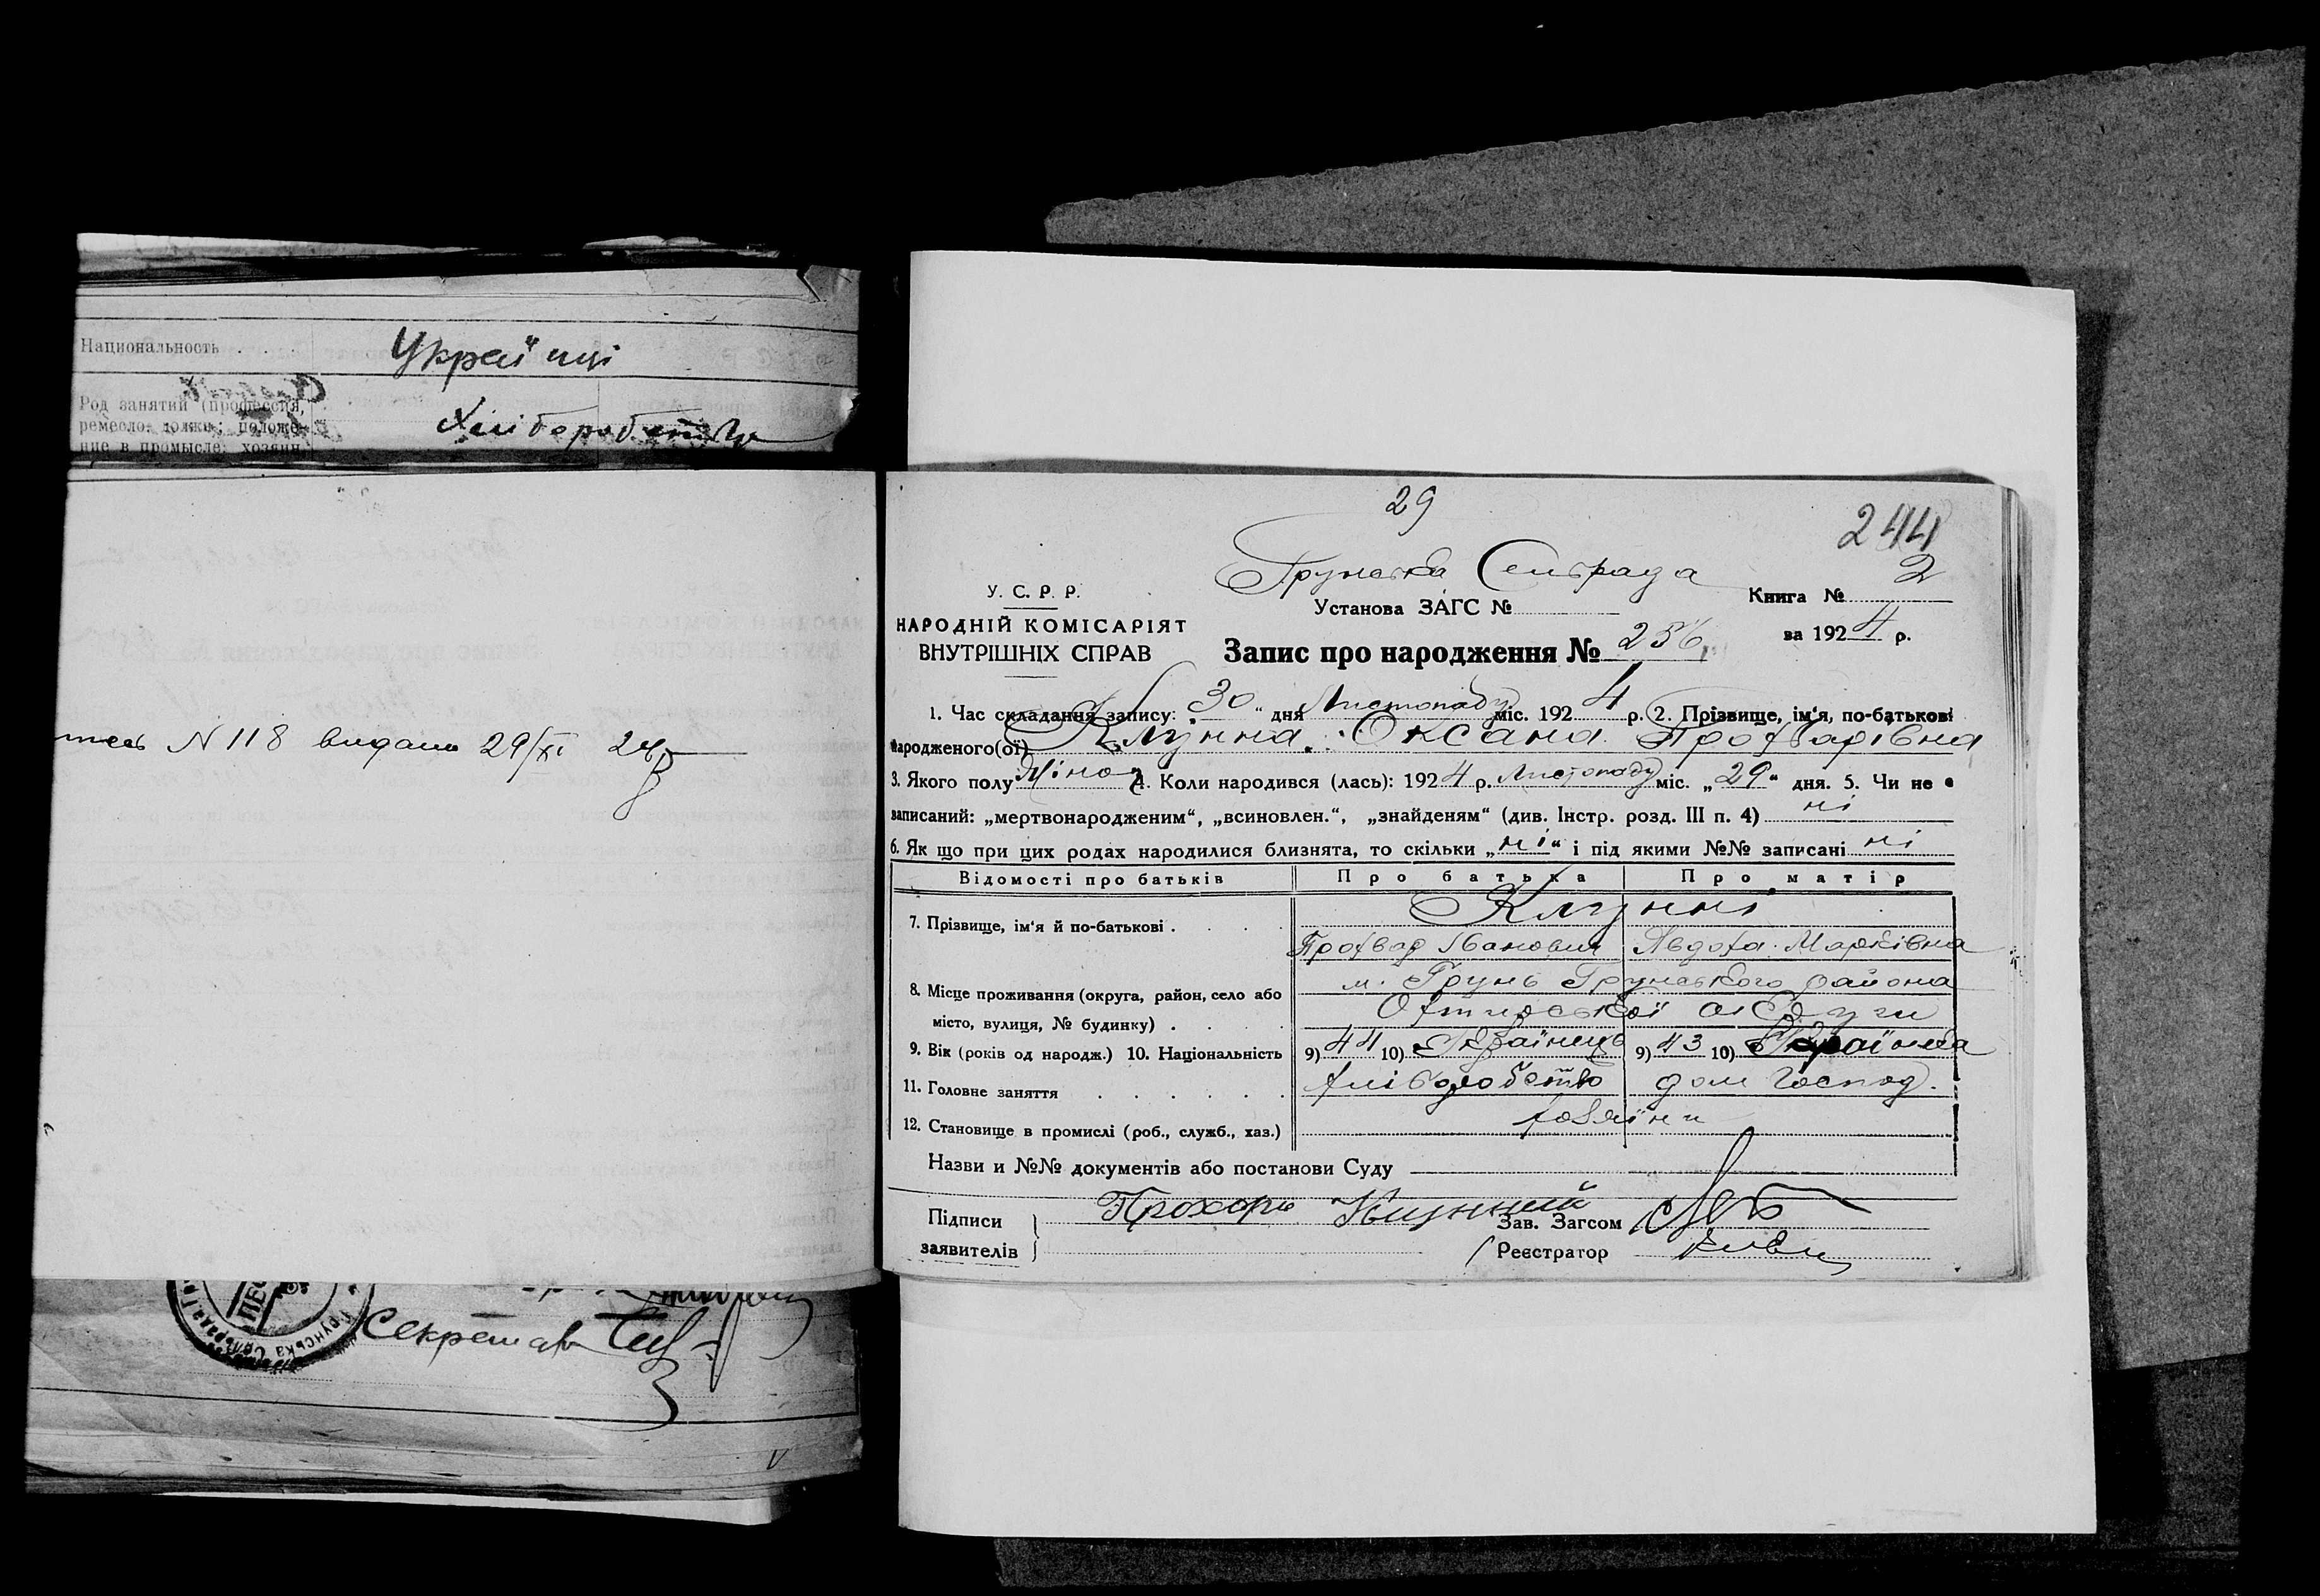 Национальность . . . Українці
Род занятий (профессия,
ремесло, должн., положе-
ние в промысле: хозяин,
Хліборобство
N 118 видано 29/XI 24р
Секретар
Грунська Сельрада
29
244
Грунська Сельрада
У. С. Р. Р.
НАРОДНІЙ КОМІСАРІЯТ
ВНУТРІШНІХ СПРАВ
Установа ЗАГС №
Книга № 2
за 1924 р.
Запис про народження № 256
1. Час складання запису: „30“ дня Листопаду міс. 1924 р. 2. Прізвище, ім‘я, по-батькові
народженого(ої) Клунна Оксана Прохварівна
3. Якого полу Жіноч 4. Коли народився (лась): 1924 р. Листопаду міс. „29“ дня. 5. Чи не є
записаний: „мертвонародженим“, „всиновлен.“, „знайденям“ (див. Інстр. розд. III п. 4) ні
6. Як що при цих родах народилися близнята, то скільки „ні“ і під якими №№ записані ні
Відомості про батьків Про батька Про матір
7. Прізвище, ім‘я й по-батькові . . . . Клунні
Іванович Явдоха Марківна
8. Місце проживання (округа, район, село або
місто, вулиця, № будинку) . . . .
м. Грунь Грунського района
Охтирської округи
9. Вік (років од народж.) 10. Національність 9) 44 10) Українець 9) 43 10) Українка
11. Головне заняття . . . . . . хліборобство дом господ.
12. Становище в промислі (роб., служб., хаз.) хазяїни
Назви и №№ документів або постанови Суду
Підписи
заявителів
Прохорь Клунний
Зав. Загсом
Реєстратор